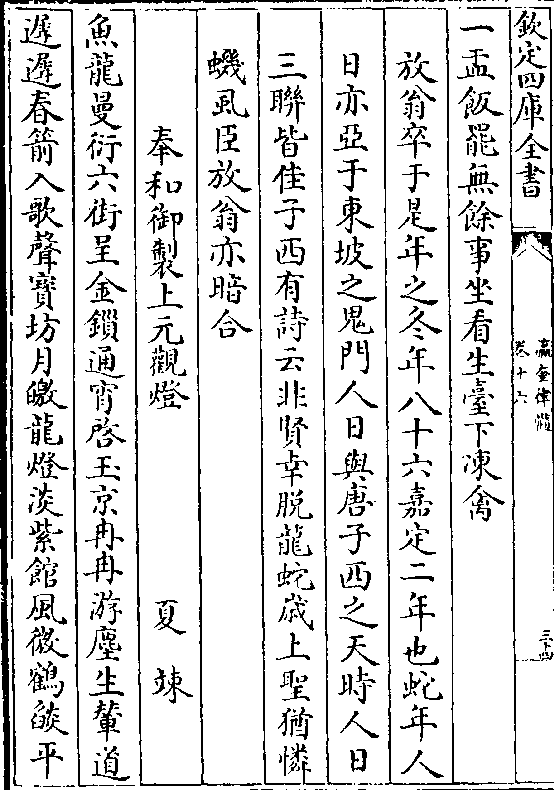 欽定四庫全書
瀛奎律髓
卷十六
三十四
一盂飯罷無餘事坐看生臺下凍禽
放翁卒于是年之冬年八十六嘉定二年也蛇年人
日亦亞于東坡之鬼門人日與唐子西之天時人日
三聯皆佳子西有詩云非賢幸脱龍蛇歳上聖猶憐
蟣虱臣放翁亦暗合
奉和御製上元觀燈
夏竦
魚龍曼衍六街呈金鎖通宵啓玉京冉冉游塵生輦道
遲遲春箭入歌聲寶坊月皦龍燈淡紫館風微鶴燄平